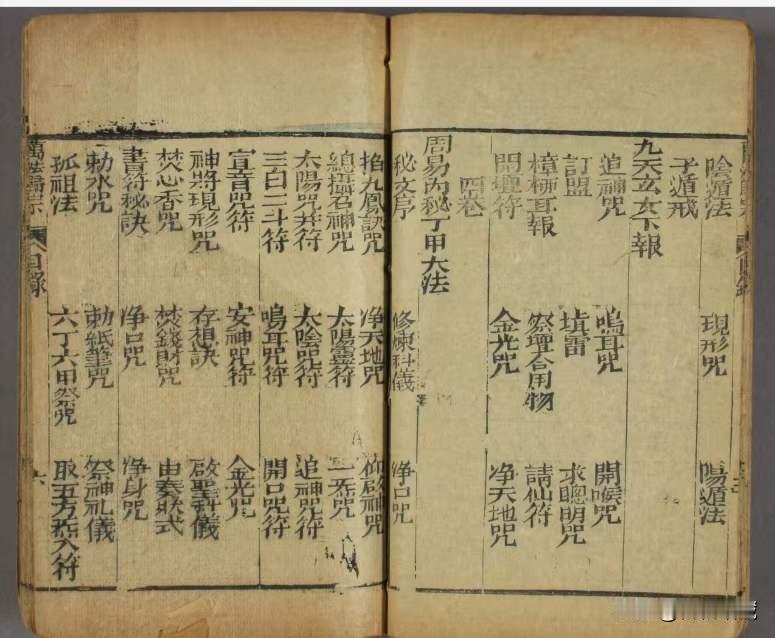 陰遁法 現形咒 陽遁法
子遁戒
九天玄女下報
追神咒 鳴耳咒 開喉咒
訂盟 填雷 求聰明咒
樟柳耳報 祭壇合用物 請仙符
開壇符 金光咒 净天地咒
四卷
周易內秘丁甲大法
秘文序 修煉科儀 净口咒
掐九鳳訣咒 净天地咒 仰啟神咒
總攝召神咒 太陽靈符 一炁咒
太陽咒并符 太陰咒符 追神咒符
三台二斗符 鳴耳咒符 開口咒符
宣音咒符 安神咒符 金光咒
神將現形咒 存想訣 啟聖科儀
焚心香咒 焚錢財咒 由奏狀式
書符秘訣 净口咒 净身咒
勅水咒 勅紙筆咒 祭神礼儀
孤祖法 六丁六甲祭咒 取五方炁入符
萬法歸宗 目録 六